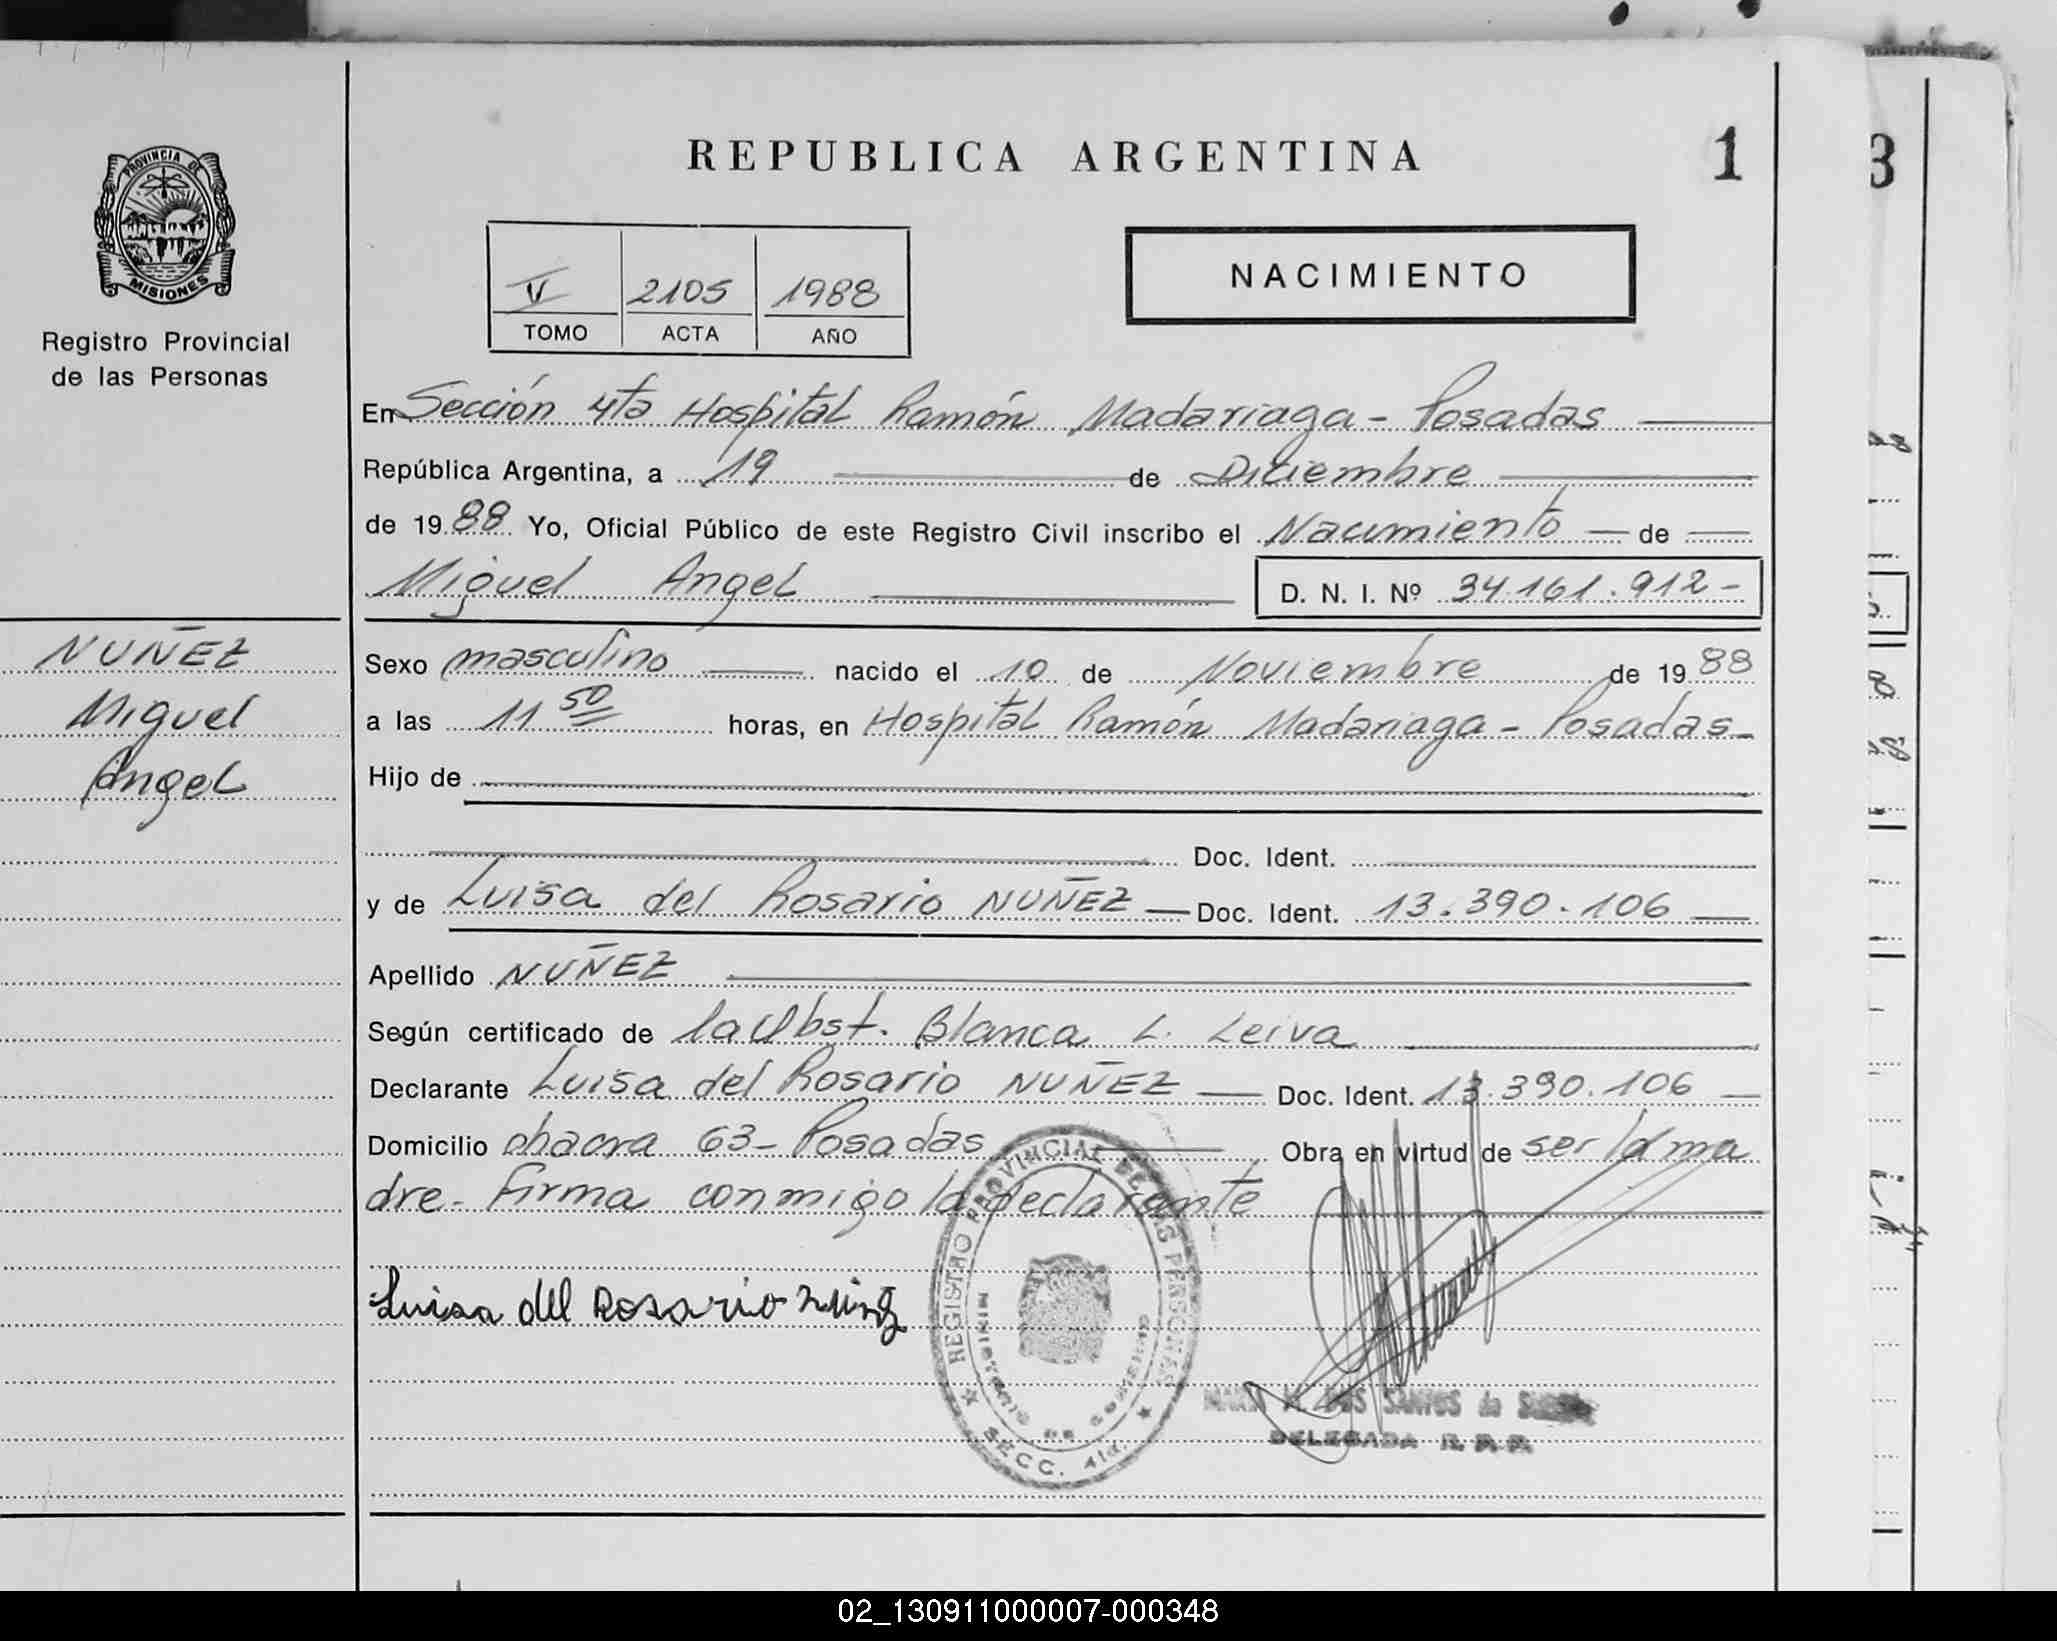 REPUBLICA ARGENTINA
1
3
PROVINCIA DE
MISIONES
Registro Provincial
de las Personas
V 2105 1988
TOMO ACTA AÑO
NACIMIENTO
En Sección 4ta Hospital Ramón Madariaga - Posadas
República Argentina, a 19 de Diciembre
de 1988 Yo, Oficial Público de este Registro Civil inscribo el Nacimiento de
Miguel Angel D. N. I. Nº 34.161.912-
NUÑEZ
Miguel
Angel
Sexo masculino nacido el 10 de Noviembre de 1988
a las 11 50 horas, en Hospital Ramón Madariaga - Posadas
Hijo de
Doc. Ident.
y de Luisa del Rosario NUÑEZ Doc. Ident. 13.390.106
Apellido NUÑEZ
Según certificado de la Obst. Blanca L. Leiva
Declarante Luisa del Rosario NUÑEZ Doc. Ident. 13.390.106
Domicilio chacra 63 - Posadas Obra en virtud de ser la ma
dre - Firma conmigo la declarante
Luisa del Rosario
REGISTRO PROVINCIAL DE LAS PERSONAS
MINISTERIO DE GOBIERNO
SECC. 4ta.
DOS SANTOS de
DELEGADA R. P. P.
02_130911000007-000348